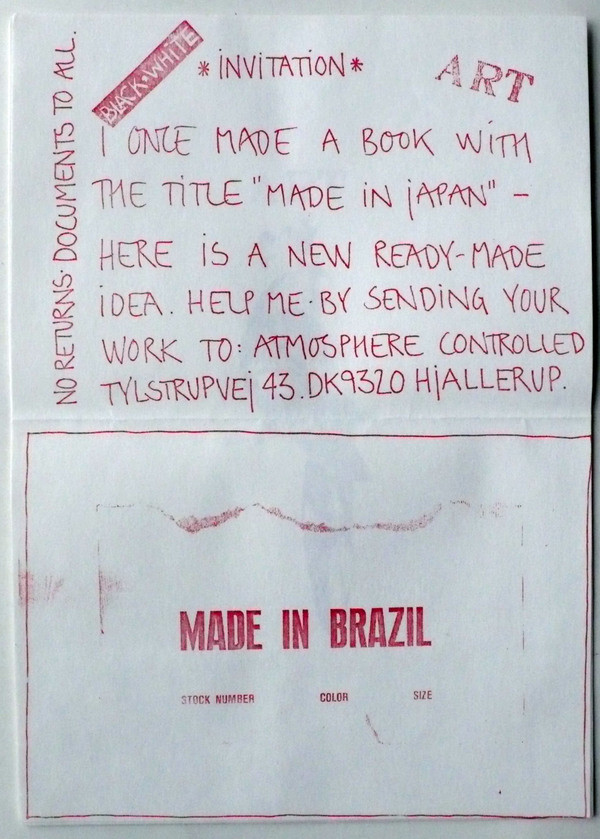 NO RETURNS. DOCUMENTS TO ALL.
BLACK·WHITE
*INVITATION*
ART
I ONCE MADE A BOOK WITH
THE TITLE "MADE IN JAPAN" –
HERE IS A NEW READY-MADE
IDEA. HELP ME·BY SENDING YOUR
WORK TO: ATMOSPHERE CONTROLLED
TYLSTRUPVEJ 43. DK9320 HJALLERUP.
MADE IN BRAZIL
STOCK NUMBER COLOR SIZE